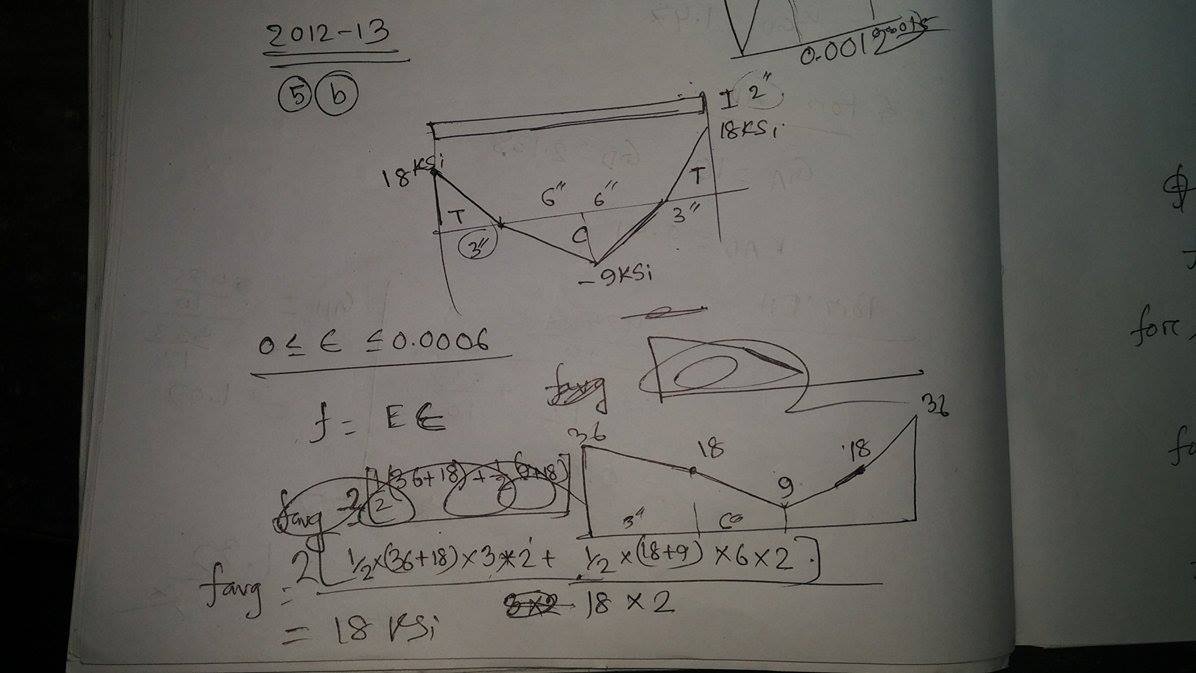 2012-13
5 b
0.0012
I 2"
18 KSi
18 KSi
T
6" 6"
T
3"
C
3"
-9KSi
0 ≤ ϵ ≤ 0.0006
f = Eϵ
favg
36
36
18
18
9
3"
forc
favg = 2[½×(36+18)×3×2 + ½×(18+9)×6×2]
18×2
= 18 KSi